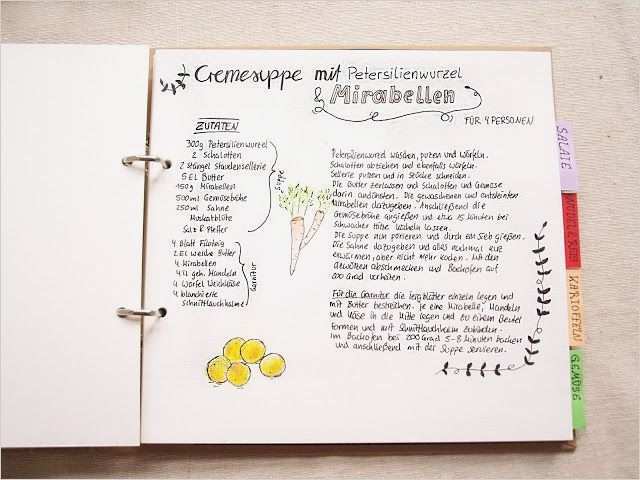 Cremesuppe mit Petersilienwurzel
& Mirabellen
FÜR 4 PERSONEN
ZUTATEN
300g Petersilienwurzel
2 Schalotten
2 Stängel Staudensellerie
5 EL Butter
150g Mirabellen
500ml Gemüsebrühe
250ml Sahne
Muskatblüte
Salz & Pfeffer
Suppe
4 Blatt Filoteig
2 EL weiche Butter
4 Mirabellen
4 EL geh. Mandeln
4 Würfel
4 blanchierte
Schnittlauchhalme
Garnitur
Petersilienwurzel waschen, putzen und würfeln.
Schalotten abziehen und ebenfalls würfeln.
Sellerie putzen und in Stücke schneiden.
Die Butter zerlassen und Schalotten und Gemüse
darin andünsten. Die gewaschenen und entsteinten
Mirabellen dazugeben. Anschließend die
Gemüsebrühe angießen und etwa 15 Minuten bei
schwacher Hitze köcheln lassen.
Die Suppe nun pürieren und durch ein Sieb gießen.
Die Sahne dazugeben und alles nochmal kurz
erwärmen, aber nicht mehr kochen. Mit den
Gewürzen abschmecken und Backofen auf
200 Grad vorheizen.
Für die Garnitur die Teigblätter einzeln legen und
mit Butter bestreichen. Je eine Mirabelle, Mandeln
und Käse in die Mitte legen und zu einem Beutel
formen und mit Schnittlauchhalm zubinden.
Im Backofen bei 200 Grad 5-8 Minuten backen
und anschließend mit der Suppe servieren.
SALATE
KARTOFFELN
GEMÜSE